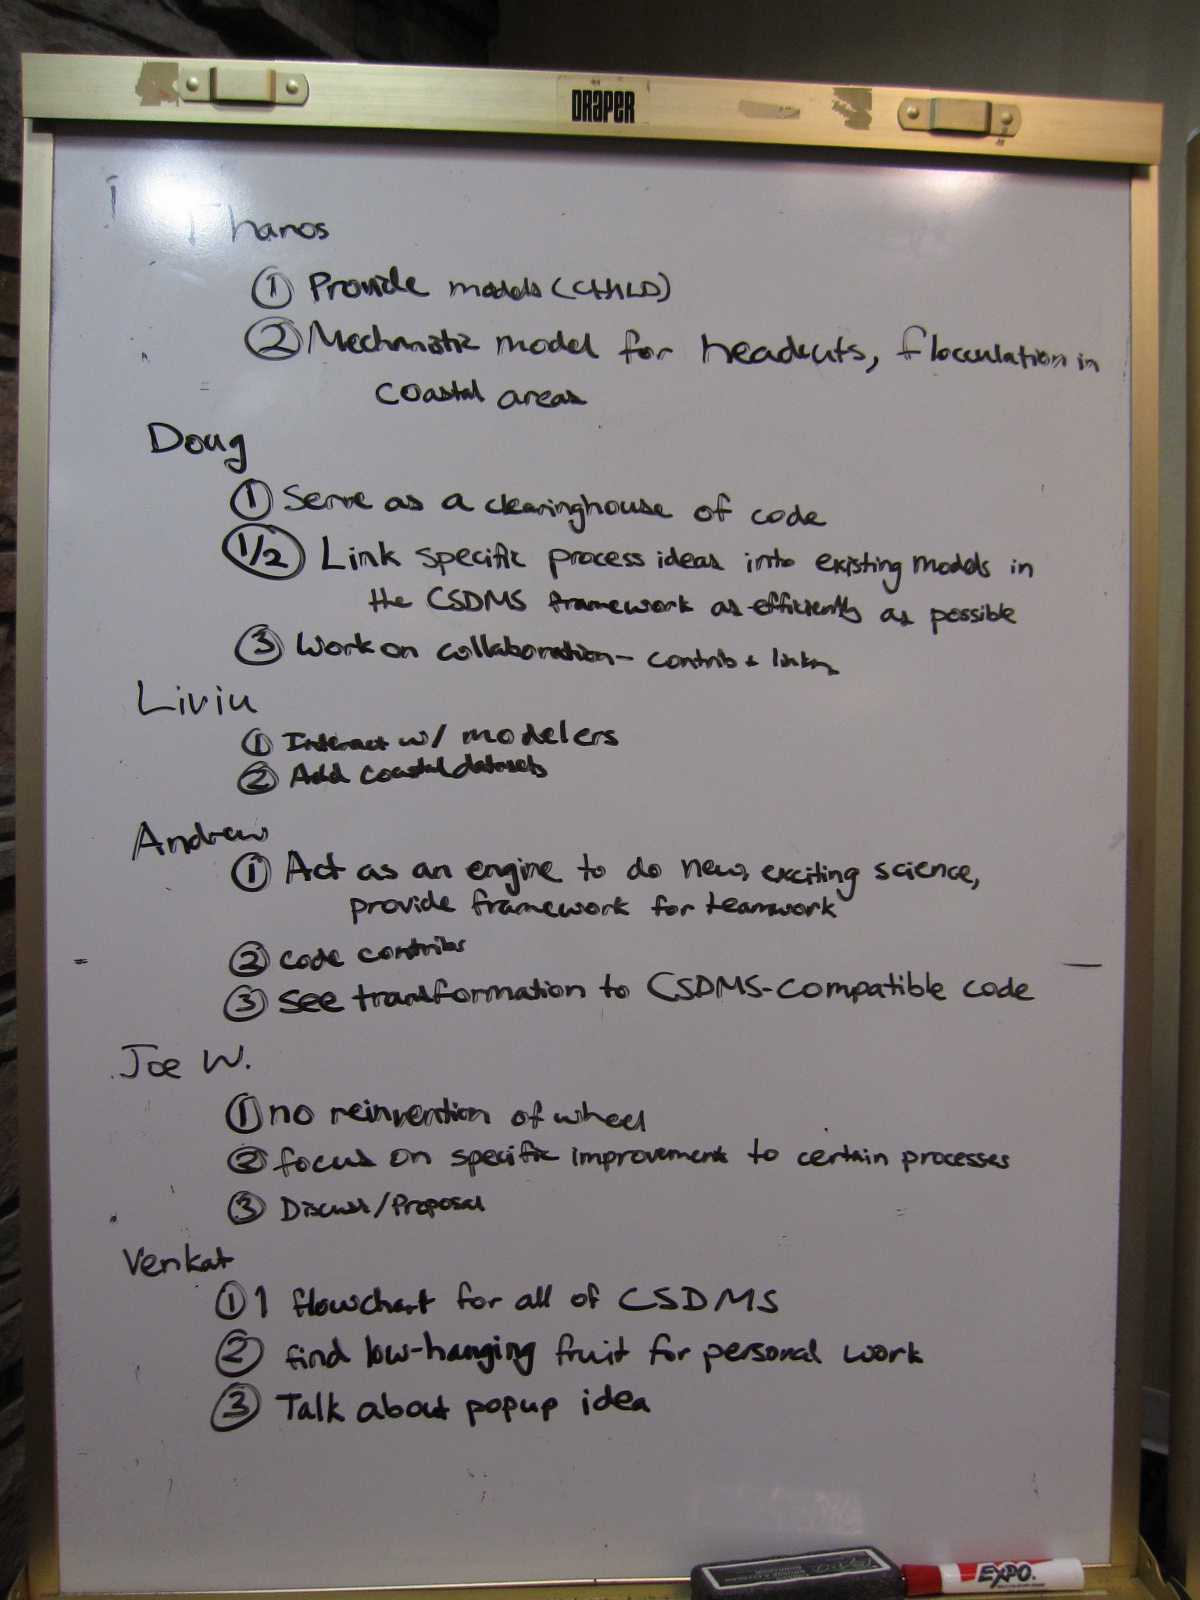 DRAPER
Thanos
① Provide models (CHILD)
② Mechanistic model for headcuts, flocculation in
coastal areas
Doug
① Serve as a clearinghouse of code
1/2 Link specific process ideas into existing models in
the CSDMS framework as efficiently as possible
③ Work on collaboration - contrib +
Liviu
① Interact w/ modelers
② Add coastal datasets
Andrew
① Act as an engine to do new, exciting science,
provide framework for teamwork
② code contribs
③ see transformation to CSDMS-compatible code
Joe W.
① no reinvention of wheel
② focus on specific improvement to certain processes
③ Discuss/Proposal
Venkat
① 1 flowchart for all of CSDMS
② find low-hanging fruit for personal work
③ Talk about popup idea
EXPO.